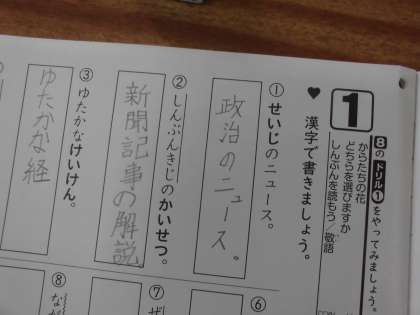 1
8の ドリル1 をやってみましょう。
からたちの花
どちらを選びますか
しんぶんを読もう／敬語
♥ 漢字で書きましょう。
① せいじのニュース。
政治のニュース。
② しんぶんきじのかいせつ。
新聞記事の解説
③ ゆたかなけいけん。
ゆたかな経
⑥
⑦
⑧